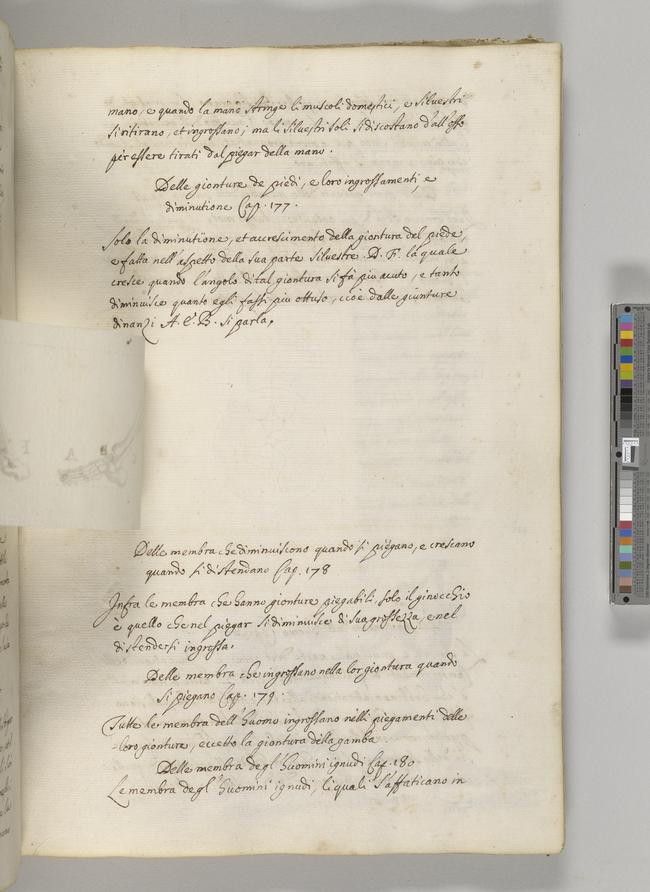 mano, e quando la mano stringe li muscoli domestici, e silvestri
si ritirano, et ingrossano; ma li silvestri soli si discostano d'all'osso
per essere tirati dal piegar della mano.
Delle gionture de piedi, e loro ingrossamenti, e
diminutione Cap. 177.
Solo la diminutione, et accrescimento della giontura del piede,
e fatta nell'aspetto della sua parte silvestre. D. F. la quale
cresce quando l'angolo di tal giontura si fà piu acuto, e tanto
diminuisce quanto egli fassi piu ottuso, cioè dalle giunture
dinanzi A. C. B. si parla.
A
B
Delle membra che diminuiscono quando si piegano, e crescano
quando si distendano Cap. 178
Infra le membra che hanno gionture piegabili, solo il ginocchio
è quello che nel piegar si diminuisce di sua grossezza, e nel
distendersi ingrossa.
Delle membra che ingrossano nella lor giontura quando
si piegano Cap. 179.
Tutte le membra dell'huomo ingrossano nelli piegamenti delle
loro gionture, eccetto la giontura della gamba
Delle membra degl'huomini ignudi Cap. 180
Le membra degl'huomini ignudi, li quali s'affaticano in